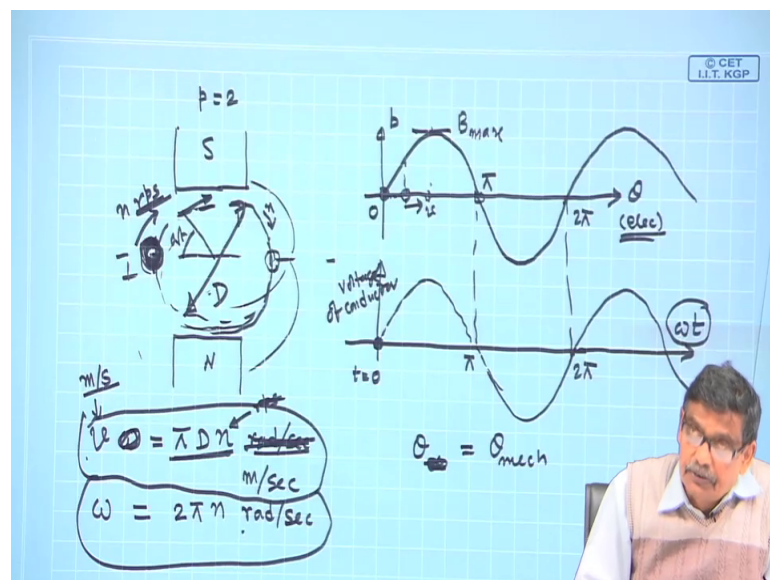 © CET
I.I.T. KGP
p = 2
S
n rps
ωt
I
D
n
N
m/s
v = π D n rad/sec
m/sec
ω = 2π n rad/sec
b
Bmax
0
v
π
2π
θ
(elec)
Voltage
of conductor
t=0
π
2π
ωt
θ = θmech